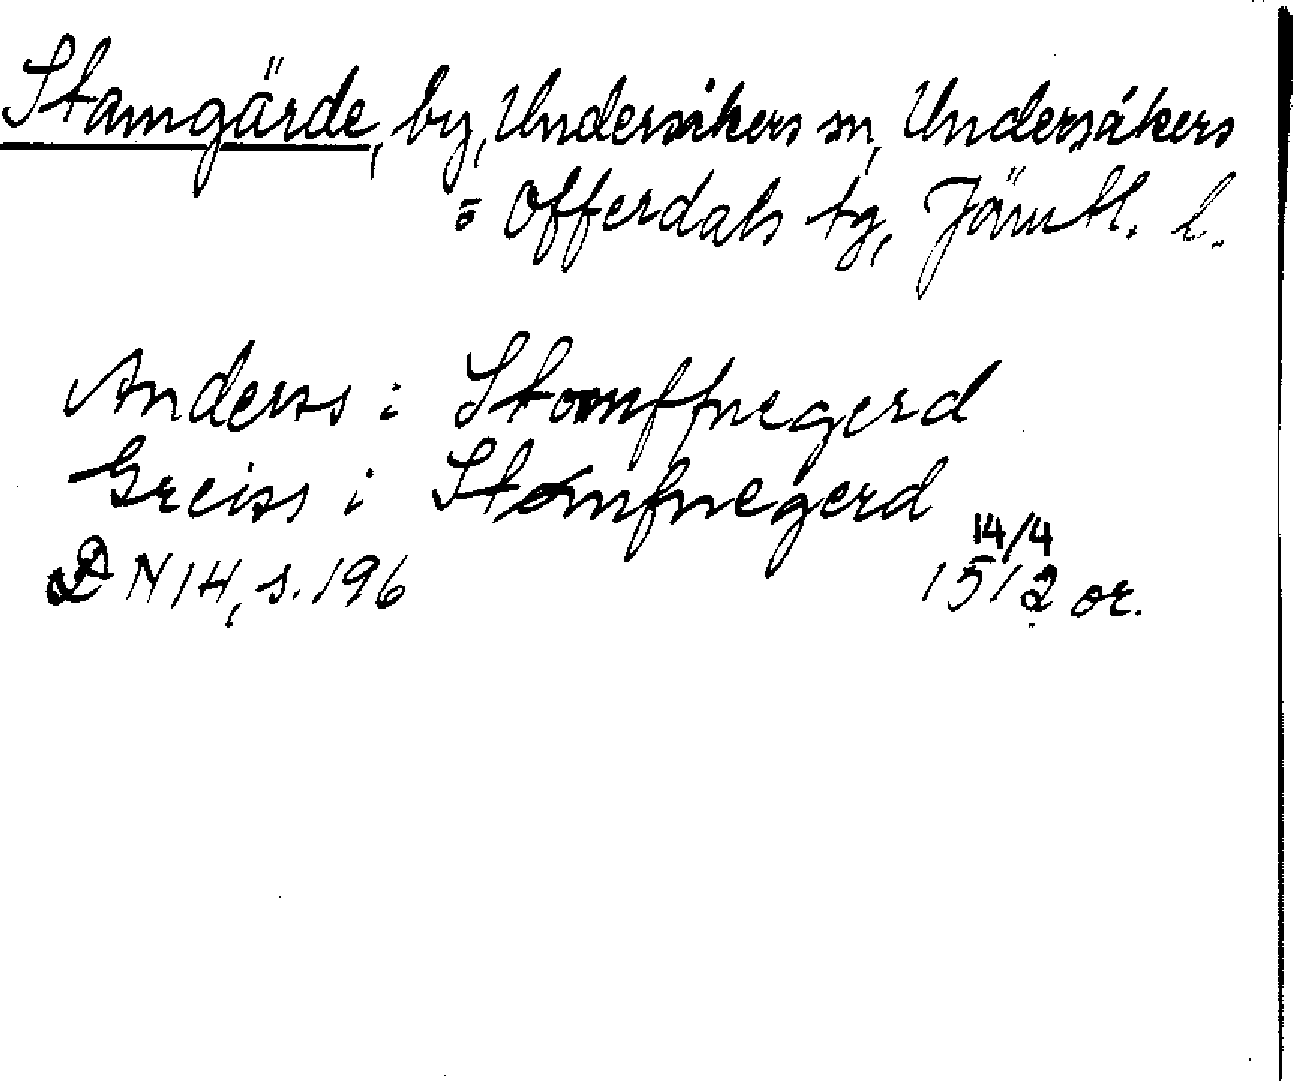 Stamgärde, by, Undersåkers sn, Undersåkers
= Offerdals tg, Jämtl. l.
Anderss i Stomffnegerd
Greiss i Stomfnegerd
14/4
DN 14, s. 196 1512 or.